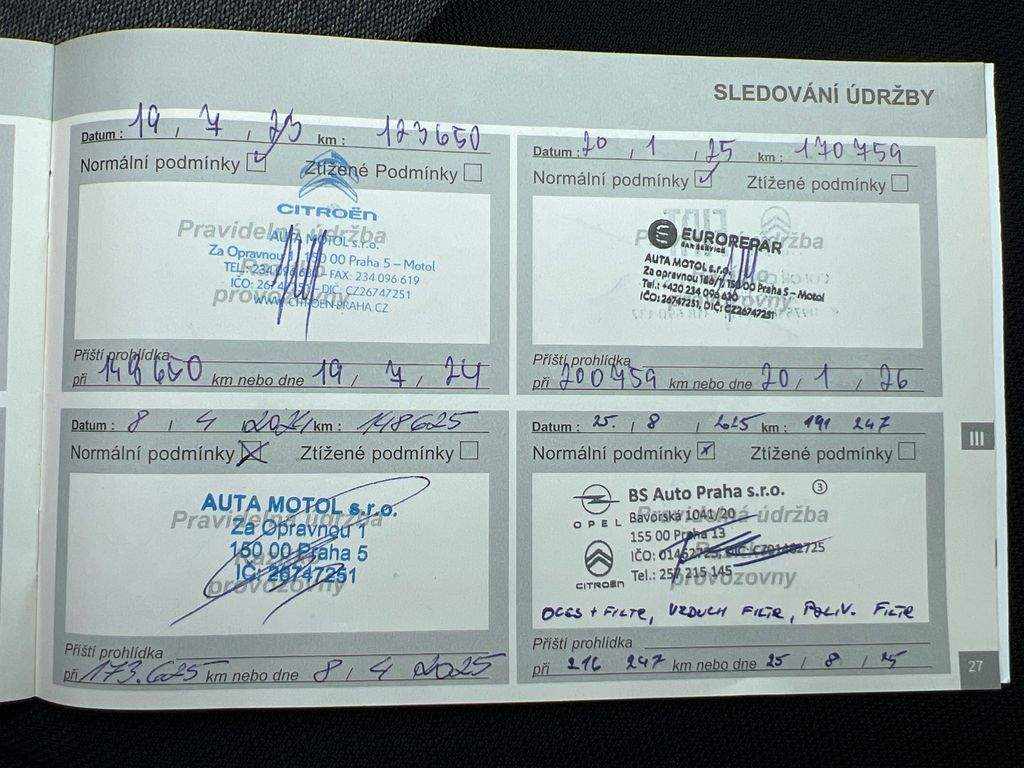 SLEDOVÁNÍ ÚDRŽBY
Datum : 19 , 7 , 23 km : 123650
Normální podmínky Ztížené Podmínky
CITROËN
Pravidelná údržba
AUTA MOTOL s.r.o.
Za Opravnou 1, 150 00 Praha 5 – Motol
TEL: 234 096 630 FAX: 234 096 619
IČO: 26747251 DIČ: CZ26747251
provozovny
WWW.CITROEN-PRAHA.CZ
Příští prohlídka
při 148650 km nebo dne 19 , 7 , 24
Datum : 8 , 4 , 2024 km : 148625
Normální podmínky Ztížené podmínky
AUTA MOTOL s.r.o.
Pravidelná údržba
Za Opravnou 1
150 00 Praha 5
Razítko
IČ: 26747251
provozovny
Příští prohlídka
při 173.625 km nebo dne 8 , 4 2025
Datum : 20 , 1 , 25 km : 170759
Normální podmínky Ztížené podmínky
EUROREPAR
CAR SERVICE
AUTA MOTOL s.r.o.
Za opravnou 186/1, 150 00 Praha 5 – Motol
Tel.: +420 234 096 630
IČO: 26747251, DIČ: CZ26747251
Příští prohlídka
při 200759 km nebo dne 20 , 1 , 26
Datum : 25. , 8 , 2025 km : 191 247
Normální podmínky Ztížené podmínky
OPEL
CITROËN
BS Auto Praha s.r.o. 3
Bavorská 1041/20
Pravidelná údržba
155 00 Praha 13
IČO: 01482725, DIČ: CZ01482725
Tel.: 257 215 145
provozovny
OLEJ + FILTR, VZDUCH FILTR, PALIV. FILTR
Příští prohlídka
při 216 247 km nebo dne 25 / 8 / 25
III
27